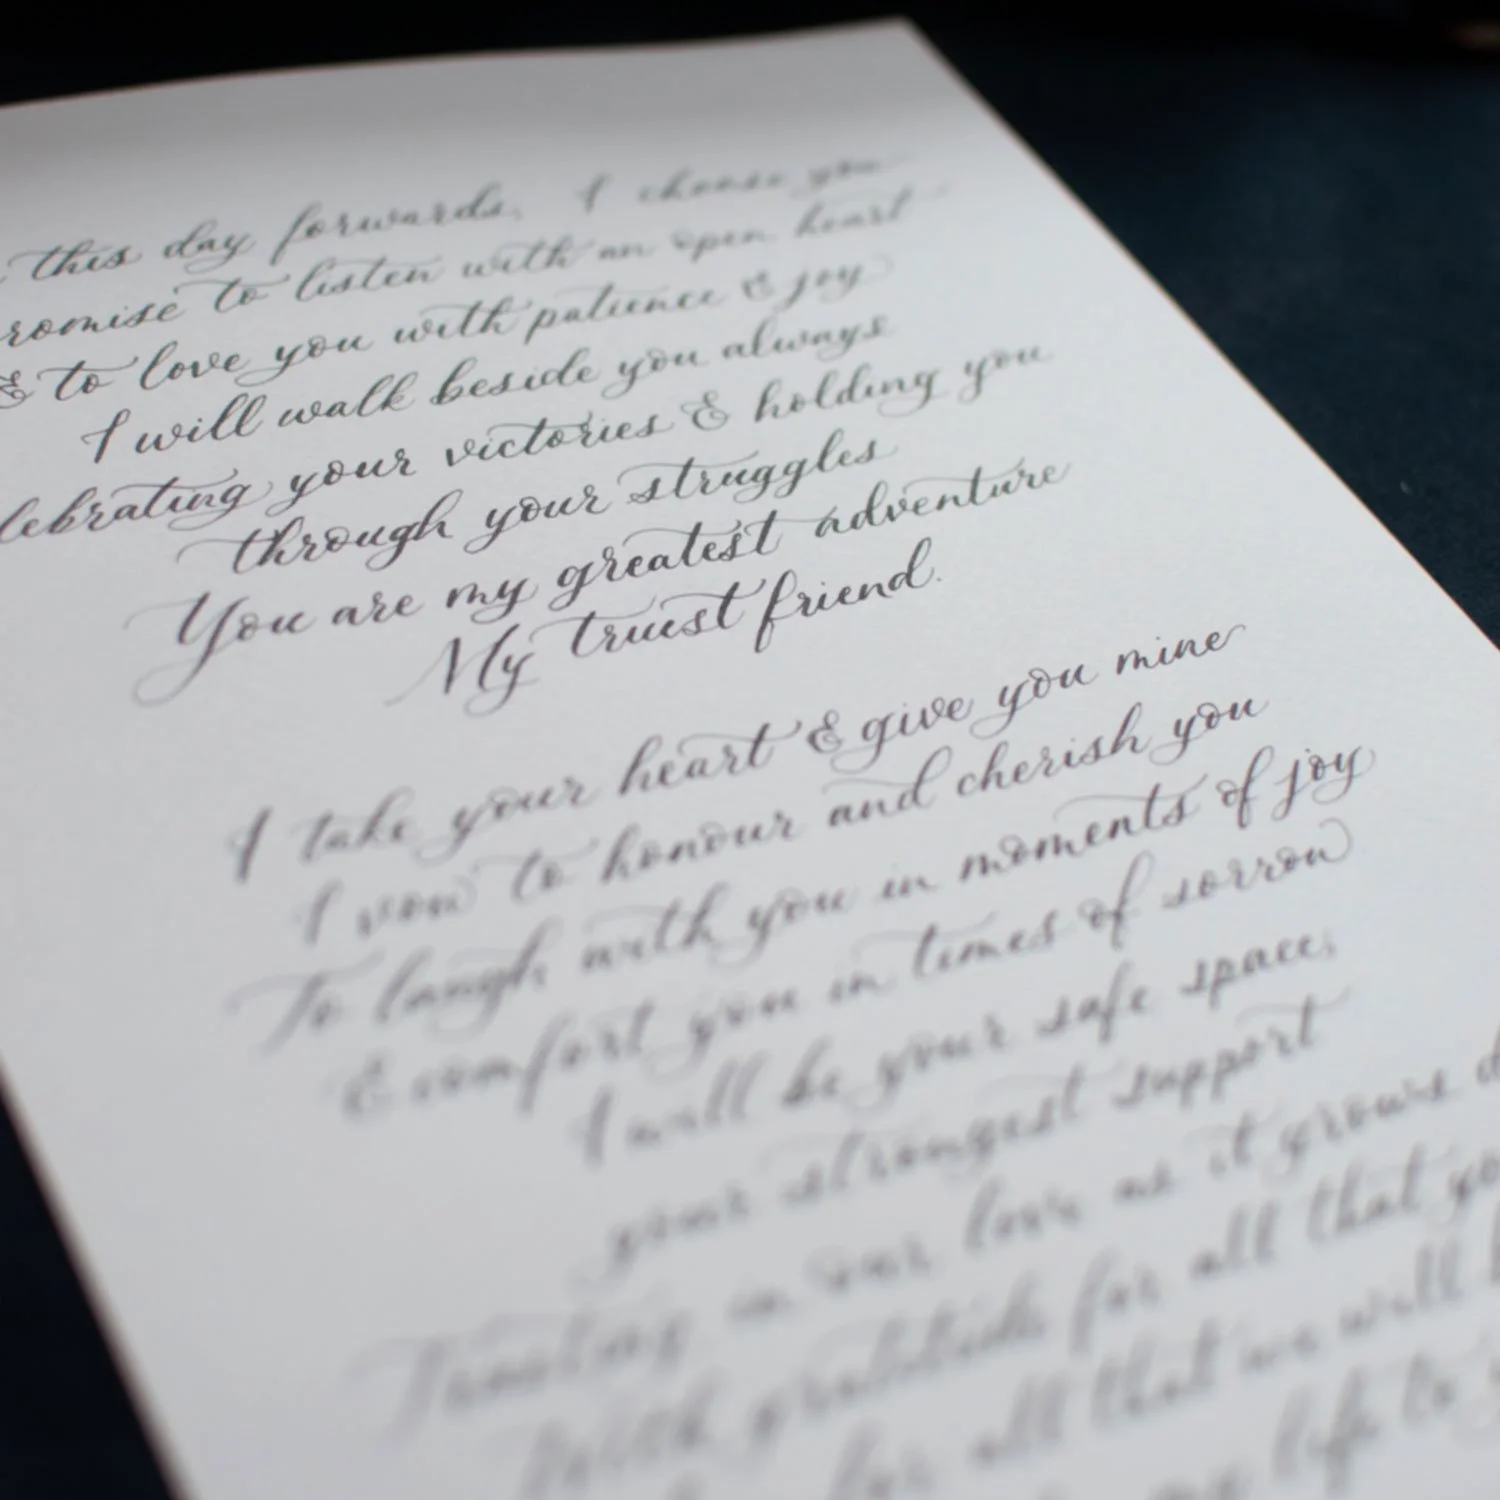 this day forwards, I choose you
romise to listen with an open heart
& to love you with patience & joy
I will walk beside you always
lebrating your victories & holding you
through your struggles
You are my greatest adventure
My truest friend.
I take your heart & give you mine
I vow to honour and cherish you
To laugh with you in moments of joy
& comfort you in times of sorrow
I will be your safe space,
your strongest support
Trusting in our love as it grows d
With gratitude for all that yo
for all that we will b
my life to y